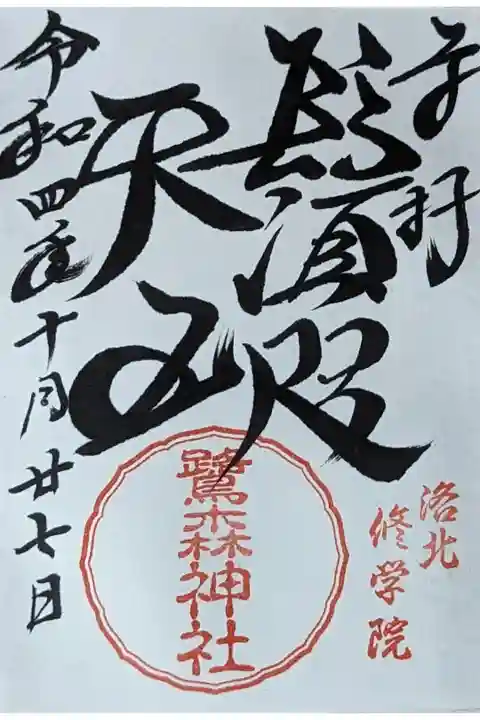 奉拝
鬚咫天王
令和四年十月廿七日
鷺森神社
洛北
修学院